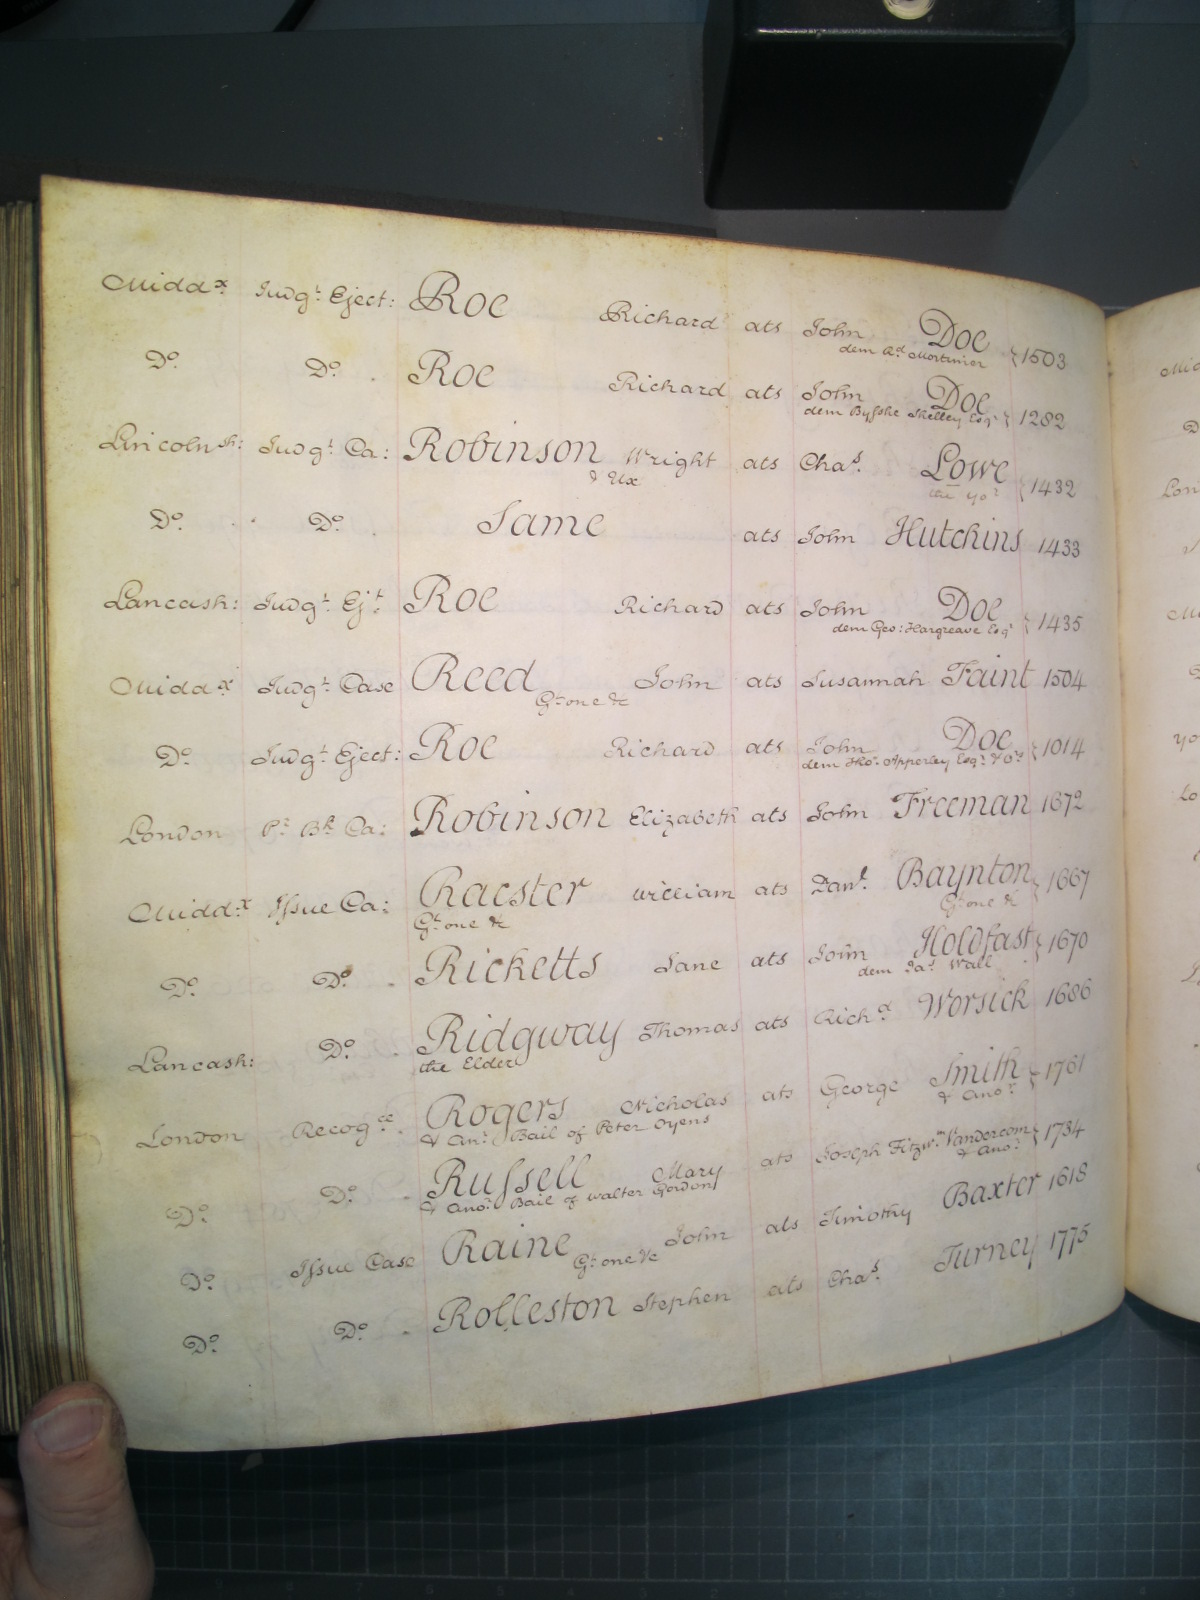 Midd.x Judg.t Eject: Roe Richard ats John Doe 1503
dem A.d Mortimer
D.o D.o Roe Richard ats John Doe 1282
dem Bysshe Shelley Esq.r
Lincolnsh: Judg.t Ca: Robinson Wright ats Cha.s Lowe 1432
& Ux the yo.r
D.o D.o Same ats John Hutchins 1433
Lancash: Judg.t Ej.t Roe Richard ats John Doe 1435
dem Geo: Hargreave Esq.r
Midd.x Judg.t Case Reed John ats Susannah Faint 1504
G.t one &c
D.o Judg.t Eject: Roe Richard ats John Doe 1014
dem Tho.s Apperley Esq.r & o.rs
London P.t B.k Ca: Robinson Elizabeth ats John Freeman 1672
Midd.x Issue Ca: Racster William ats Dan.l Baynton 1667
G.t one &c G.t one &c
D.o D.o Ricketts Jane ats John Holdfast 1670
dem Ja.s Wall
Lancash: D.o Ridgway Thomas ats Rich.d Worsick 1686
the Elder
London Recog.ce Rogers Nicholas ats George Smith 1761
& An.r Bail of Peter Oyens & Ano.r
D.o D.o Russell Mary ats Joseph Fitzw.m Vandercom 1734
& Ano.r Bail of Walter Gordon & Ano.r
D.o Issue Case Raine John ats Timothy Baxter 1618
G.t one &c
D.o D.o Rolleston Stephen ats Cha.s Turney 1775